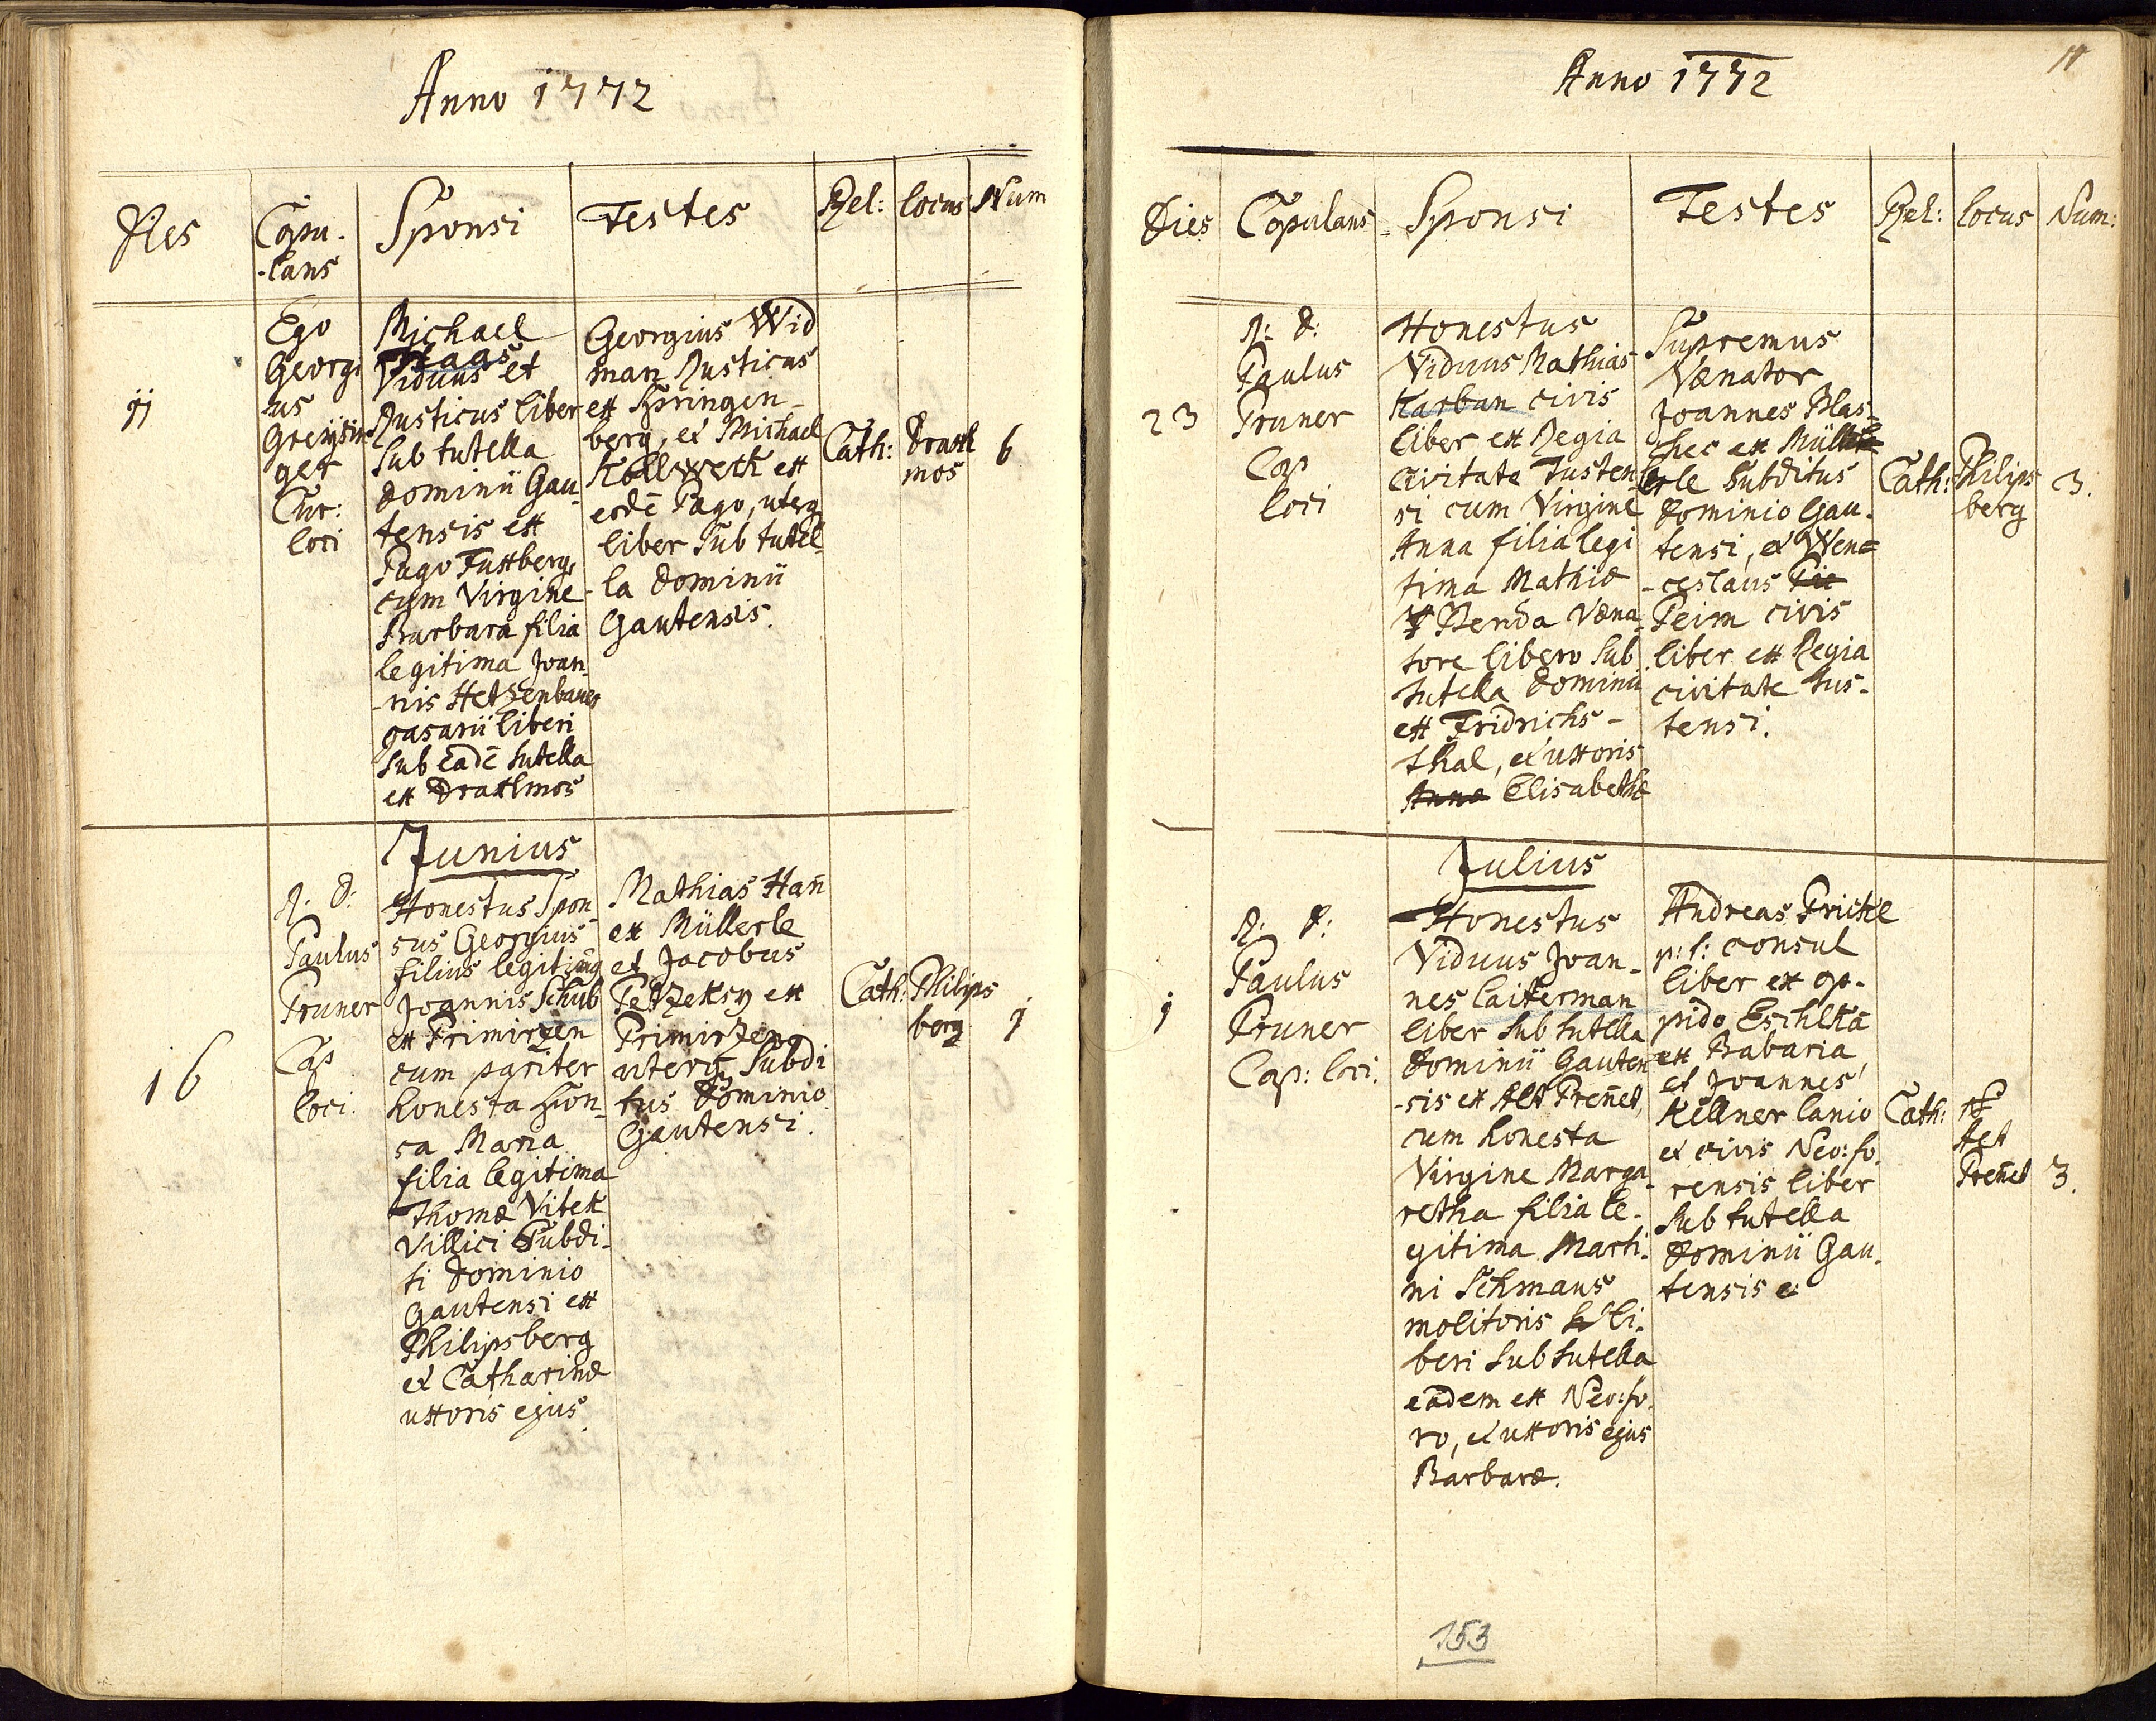 Anno 1772
Dies
Copu-
-lans
Sponsi
Testes
Rel:
locus
Num
11
Ego
Georgi
us
ger
Cur:
loci
Michael
Haas
Viduus et
Rusticus liber
sub tutella
dominii Gau-
tensis ex
Pago Fuxberg,
cum Virgine
Barbara filia
legitima Joan
-nis Hetzenbauer
casarii liberi
sub eadē tutella
ex Draxlmos
Georgius Wid
man Rusticus
ex Springen-
berg, et Michael
Kollwekh ex
eodē Pago, uterq
liber sub tutel-
la dominii
Gautensis.
Cath:
Draxl
mos
6
Junius
16
R: D:
Paulus
Pruner
Cap
loci.
Honestus Spon-
sus Georgius
filius legitimg
Joannis Schub
ex Primirzen
cum pariter
honesta Spon-
sa Maria
filia legitima
Thomæ Vitek
Villici Subdi-
ti Dominio
Gautensi ex
Philipsberg
et Catharinæ
uxoris ejus
Mathias Han̄
ex Müllerle
et Jacobus
Petzeksy ex
Primirzeng
uterq Subdi
tus Dominio
Gautensi.
Cath:
Philips
berg
1
Anno 1772
11
Dies
Copulans
Sponsi
Testes
Rel:
locus
Num:
23
R: D:
Paulus
Pruner
Cap
loci
Honestus
Viduus Mathias
Karban civis
liber ex Regia
civitate Tusten
si cum Virgine
Anna filia legi
tima Mathiæ
Benda Væna-
tore libero sub
tutella dominii
ex Fridrichs-
thal, et uxoris
Annæ Elisabethæ
Supremus
Vænator
Joannes Blas-
chec ex Müll
lerle Subditus
Dominio Gau-
tensi, et Wen=
-ceslaus Pie
Peim civis
liber ex Regia
civitate tus-
tensi.
Cath:
Philips
berg
3.
Julius
1
R: D:
Paulus
Pruner
Cap: loci.
Honestus
Viduus Joan-
nes Laiterman
liber sub tutella
dominii Gauten
-sis ex Alt Pren̄et,
cum honesta
Virgine Marga-
retha filia le-
gitima Marti-
ni Schmaus
molitoris li-
beri sub tutella
eadem ex Neo:fo.
ro, et uxoris ejus
Barbaræ.
Andreas Prickl
p: t: consul
liber ex op-
pido Eschlka
ex Babaria
et Joannes
Kellner lanio
et civis Neo:fo.
rensis liber
sub tutella
dominii Gau-
tensis
Cath:
Alt
Pren̄et
3.
153